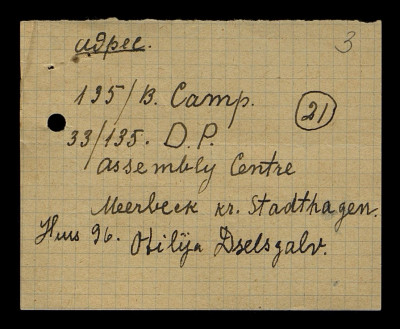 адрес. 3
195/B. Camp. 21
33/135. D.P.
assembly Centre
Meerbeck kr. Stadthagen.
Hus 96. Otilija Dselsgalv.